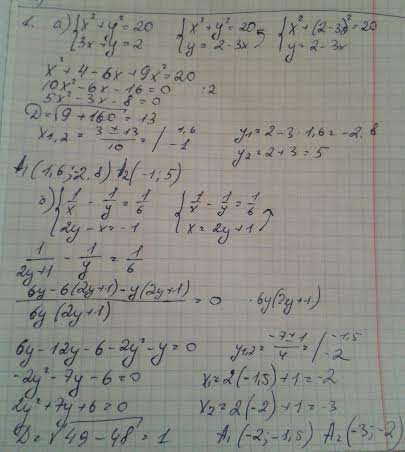 1. а) { x² + y² = 20 { x² + y² = 20 { x² + (2-3x)² = 20
3x+y = 2 y = 2-3x y = 2-3x
x² + 4 - 6x + 9x² = 20
10x² - 6x - 16 = 0 :2
5x² - 3x - 8 = 0
D = √9 + 160 = 13
x1,2 = 3 ± 13 / 10 = / 1,6 y1 = 2-3·1,6 = -2,8
-1 y2 = 2+3 = 5
A1 (1,6; -2,8) A2 (-1; 5)
{ 1/x - 1/y = 1/6 { 1/x - 1/y = 1/6
2y - x = -1 x = 2y+1
1/(2y+1) - 1/y = 1/6
6y - 6(2y+1) - y(2y+1) / 6y(2y+1) = 0 ·6y(2y+1)
6y - 12y - 6 - 2y² - y = 0 y1,2 = -7±1 / 4 = / -1,5
-2
-2y² - 7y - 6 = 0 x1 = 2(-1,5)+1 = -2
2y² + 7y + 6 = 0 x2 = 2(-2)+1 = -3
D = √49 - 48 = 1 A1 (-2; -1,5) A2 (-3; -2)